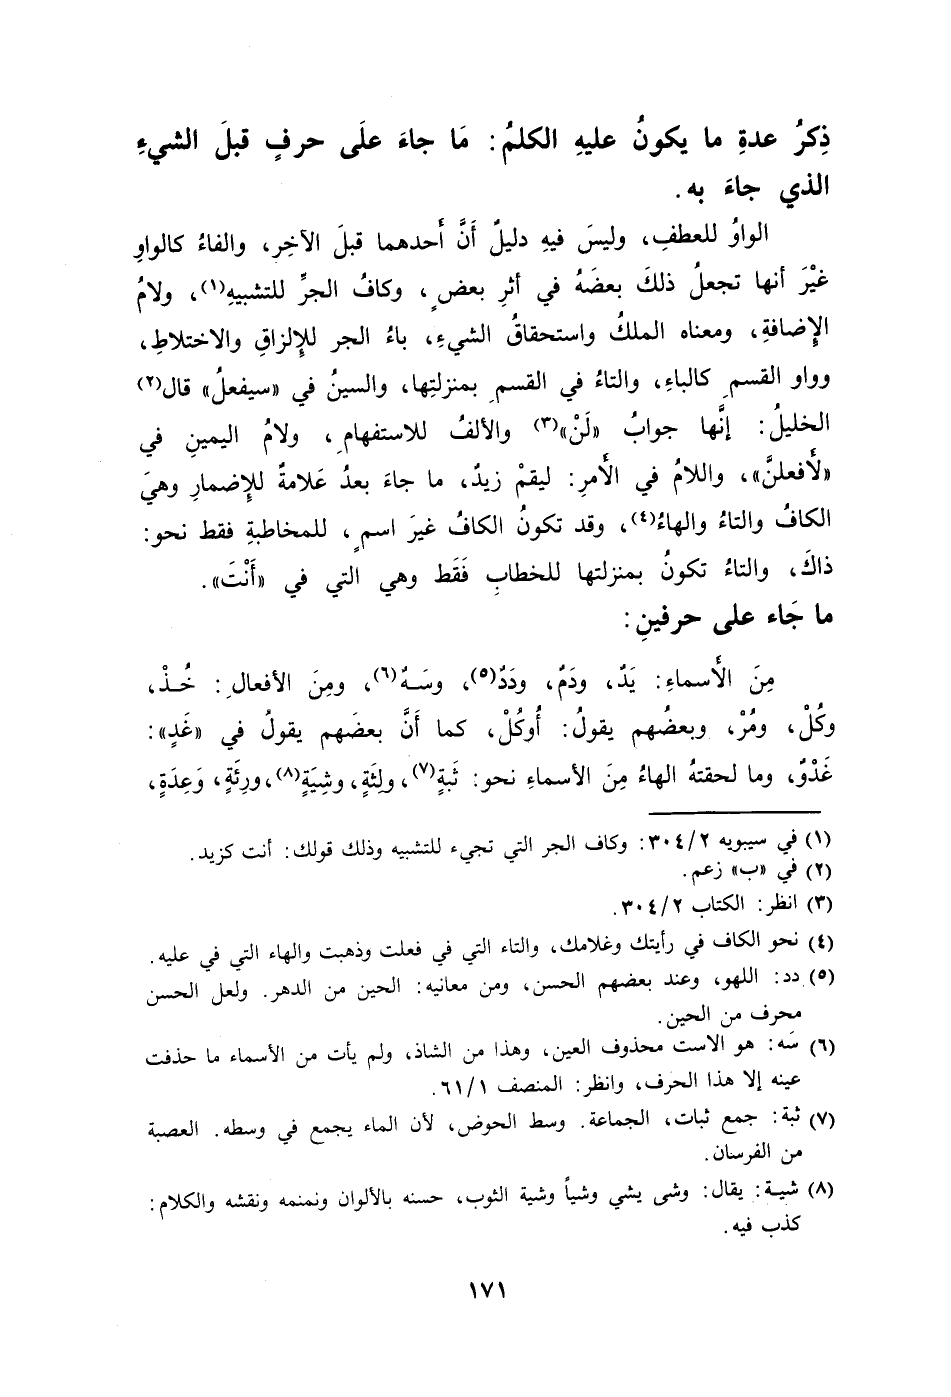 ذِكرُ عدةِ ما يكونُ عليهِ الكلمُ: مَا جاءَ علَى حرفٍ قبلَ الشيءِ
الذي جاءَ به.
الواوُ للعطفِ، وليسَ فيهِ دليلٌ أَنَّ أَحدهما قبلَ الآخِر، والفاءُ كالواوِ
غيْرَ أنها تجعلُ ذلكَ بعضَهُ في أثرِ بعضٍ، وكافُ الجرِّ للتشبيهِ(١)، ولامُ
الإِضافةِ، ومعناه الملكُ واستحقاقُ الشيءِ، باءُ الجر للإِلزاقِ والاختلاطِ،
وواو القسمِ كالباءِ، والتاءُ في القسمِ بمنزلتِها، والسينُ في «سيفعلُ» قال(٢)
الخليلُ: إنَّها جوابُ «لَنْ»(٣) والألفُ للاستفهامِ، ولامُ اليمينِ في
«لأَفعلنَّ»، واللامُ في الأَمرِ: ليقمْ زيدٌ، ما جاءَ بعدُ عَلامةٌ للإِضمارِ وهيَ
الكافُ والتاءُ والهاءُ(٤)، وقد تكونُ الكافُ غيرَ اسمٍ، للمخاطبةِ فقط نحو:
ذاكَ، والتاءُ تكونُ بمنزلتها للخطابِ فَقَط وهي التي في «أَنْتَ».
ما جَاء على حرفينِ:
مِنَ الأَسماءِ: يَدٌ، ودَمٌ، ودَدٌ(٥)، وسَهٌ(٦)، ومِنَ الأفعالِ: خُذْ،
وكُلْ، ومُرْ، وبعضُهم يقولُ: أُوكُلْ، كما أَنَّ بعضَهم يقولُ في «غَدٍ»:
غَدْوٌ، وما لحقتهُ الهاءُ مِنَ الأسماءِ نحو: ثَبةٍ(٧)، ولِثَةٍ، وشِيَةٍ(٨)، ورِئَةٍ، وَعِدَةٍ،
(١) في سيبويه ٣٠٤/٢: وكاف الجر التي تجيء للتشبيه وذلك قولك: أنت كزيد.
(٢) في «ب» زعم.
(٣) انظر: الكتاب ٣٠٤/٢.
(٤) نحو الكاف في رأيتك وغلامك، والتاء التي في فعلت وذهبت والهاء التي في عليه.
(٥) دد: اللهو، وعند بعضهم الحسن، ومن معانيه: الحين من الدهر. ولعل الحسن
محرف من الحين.
(٦) سَه: هو الاست محذوف العين، وهذا من الشاذ، ولم يأت من الأسماء ما حذفت
عينه إلا هذا الحرف، وانظر: المنصف ٦١/١.
(٧) ثبة: جمع ثبات، الجماعة. وسط الحوض، لأن الماء يجمع في وسطه. العصبة
من الفرسان.
(٨) شية: يقال: وشى يشي وشياً وشية الثوب، حسنه بالألوان ونمنمه ونقشه والكلام:
كذب فيه.
١٧١